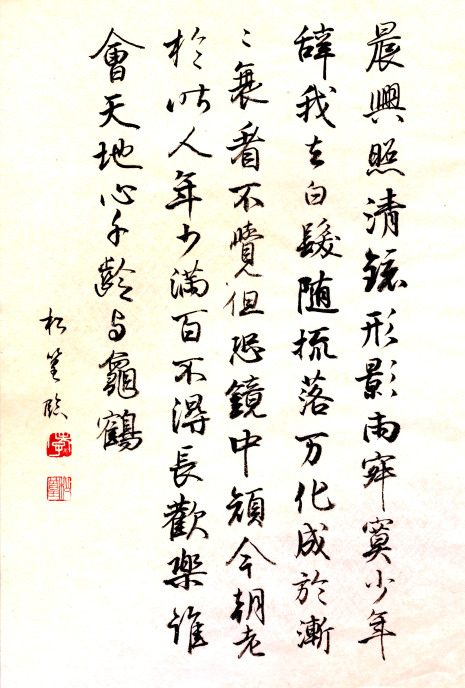 晨興照清鏡形影兩寂寞少年
辭我去白髮随梳落万化成於漸
〻衰看不覺但恐鏡中顏今朝老
於昨人年少滿百不得長歡樂誰
會天地心千齡与龜鶴
松臨